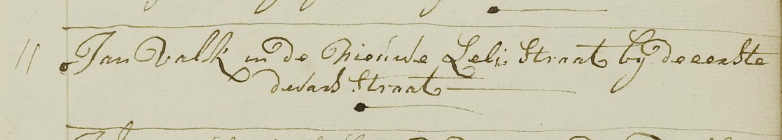 11 Jan Valk in de Nieuwe Lelij Straat bij de eerste
dwars Straat